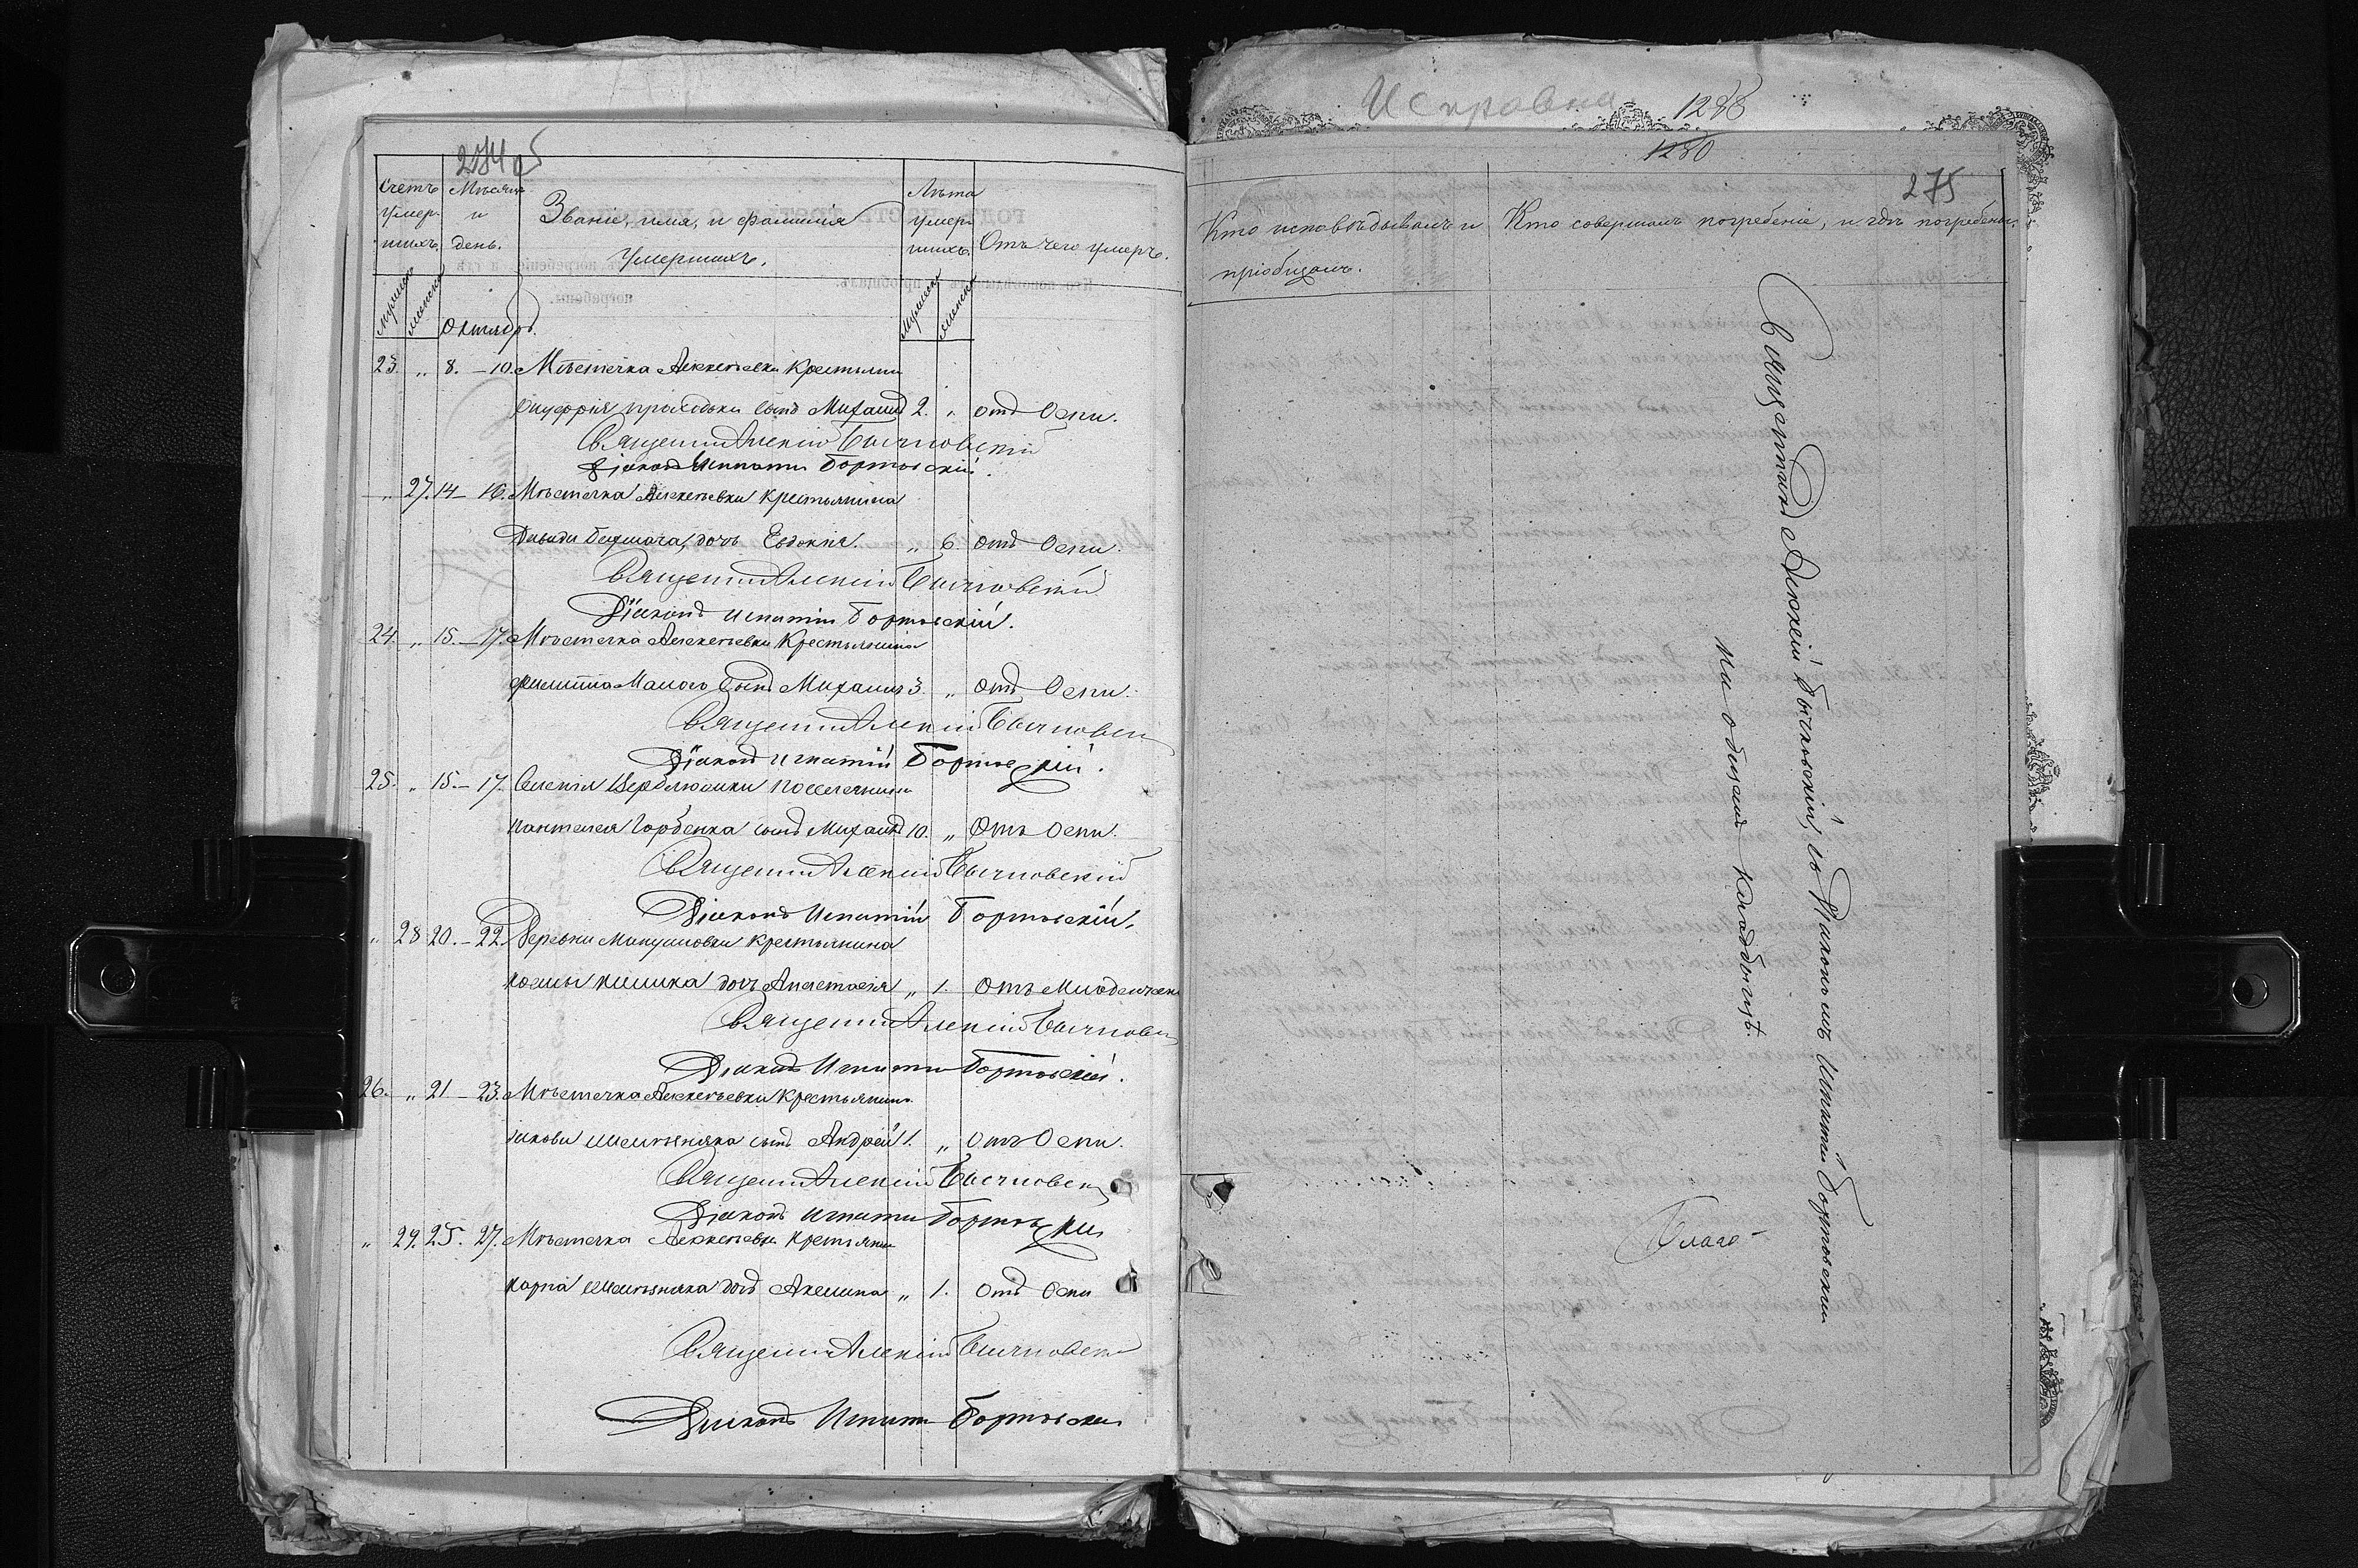 Счетъ умер- шихъ.
Мѣсяцъ и день.
Званіе, имя, и фамилія умершихъ.
Лѣта умер- шихъ.
Отъ чего умеръ.
Октябрь.
23. „ 8. – 10. Мѣстечка Алексѣевки крестьянина
Онуфрія сынъ Михаилъ 2. „ отъ Оспи.
Священникъ Алексій Бычковскій
Діаконъ Игнатій Бортовскій.
„ 27. 14 – 16. Мѣстечка Алексѣевки крестьянина
дочь Евдокія. „ 6. отъ Оспи.
Священникъ Алексій Бычковскій
Діаконъ Игнатій Бортовскій.
24. „ 15. – 17. Мѣстечка Алексѣевки крестьянина
Филиппа Малого сынъ Михаилъ 3. „ отъ Оспи.
Священникъ Алексій Бычковскій
Діаконъ Игнатій Бортовскій.
25. „ 15. – 17. Селенія поселянина
Пантелея Горбенка сынъ Михаилъ 10. „ Отъ Оспи.
Священникъ Алексій Бычковскій
Діаконъ Игнатій Бортовскій.
„ 28 20. – 22. Деревни крестьянина
Космы дочь Анастасія „ 1. Отъ
Священникъ Алексій Бычковскій
Діаконъ Игнатій Бортовскій.
26. „ 21 – 23. Мѣстечка Алексѣевки крестьянина
Іакова сынъ Андрей 1. „ отъ Оспи.
Священникъ Алексій Бычковскій
Діаконъ Игнатій Бортовскій
„ 29. 25. 27. Мѣстечка Алексѣевки крестьянина
Карпа дочь Акилина „ 1. отъ Оспи
Священникъ Алексій Бычковскій
Діаконъ Игнатій Бортовскій
1288
1280
275
Кто исповѣдывалъ и пріобщалъ.
Кто совершалъ погребеніе, и гдѣ погребены.
Священникъ Алексій Бычковскій, съ Діакономъ Игнатіемъ Бортовскимъ
на общемъ кладбищѣ.
Благо-